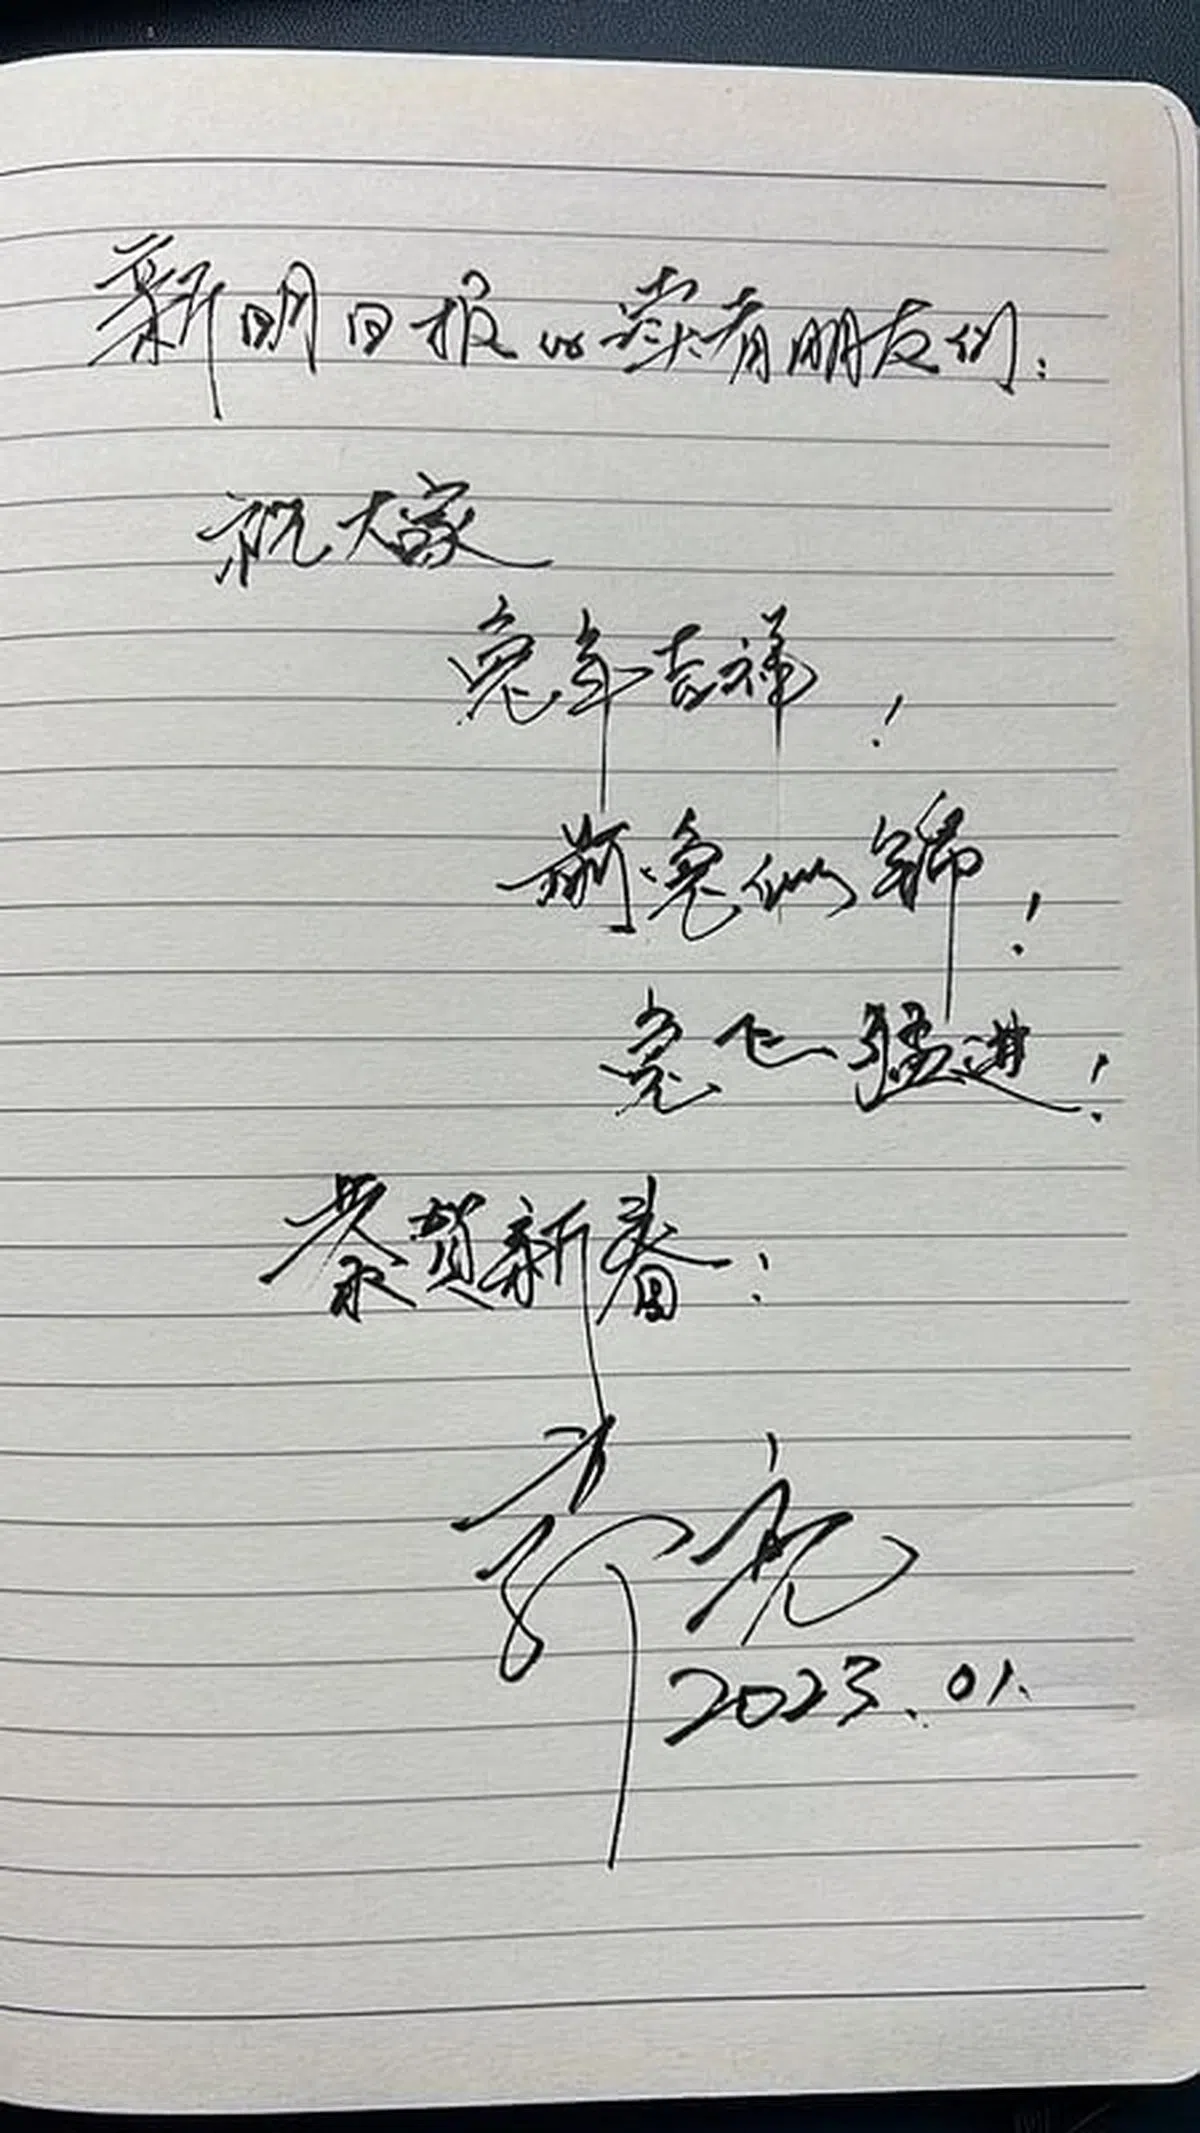 新明日报的读者朋友们：
祝大家
兔年吉祥！
前兔似锦！
兔飞猛进！
恭贺新春！
郭亮
2023.01.